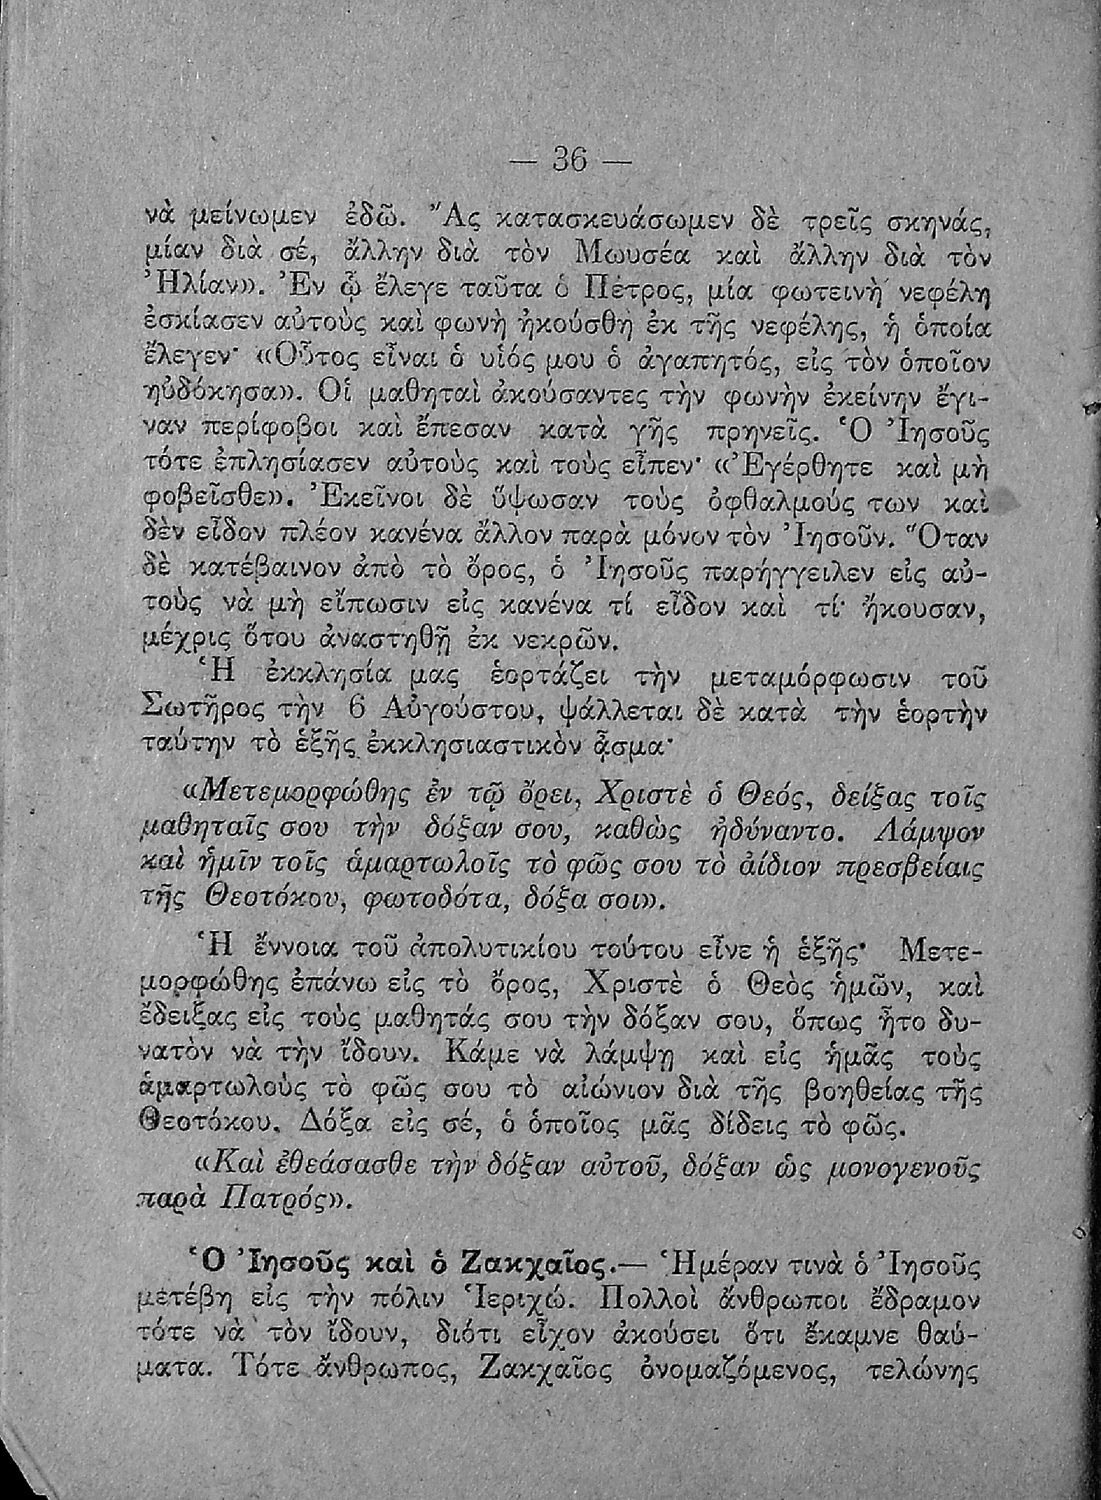 — 36 —
νὰ μείνωμεν ἐδῶ. Ἂς κατασκευάσωμεν δὲ τρεῖς σκηνάς,
μίαν διὰ σέ, ἄλλην διὰ τὸν Μωυσέα καὶ ἄλλην διὰ τὸν
Ἠλίαν». Ἐν ᾧ ἔλεγε ταῦτα ὁ Πέτρος, μία φωτεινὴ νεφέλη
ἐσκίασεν αὐτοὺς καὶ φωνὴ ἠκούσθη ἐκ τῆς νεφέλης, ἡ ὁποία
ἔλεγεν· «Οὗτος εἶναι ὁ υἱός μου ὁ ἀγαπητός, εἰς τὸν ὁποῖον
ηὐδόκησα». Οἱ μαθηταὶ ἀκούσαντες τὴν φωνὴν ἐκείνην ἔγι-
ναν περίφοβοι καὶ ἔπεσαν κατὰ γῆς πρηνεῖς. Ὁ Ἰησοῦς
τότε ἐπλησίασεν αὐτοὺς καὶ τοὺς εἶπεν· «Ἐγέρθητε καὶ μὴ
φοβεῖσθε». Ἐκεῖνοι δὲ ὕψωσαν τοὺς ὀφθαλμούς των καὶ
δὲν εἶδον πλέον κανένα ἄλλον παρὰ μόνον τὸν Ἰησοῦν. Ὅταν
δὲ κατέβαινον ἀπὸ τὸ ὄρος, ὁ Ἰησοῦς παρήγγειλεν εἰς αὐ-
τοὺς νὰ μὴ εἴπωσιν εἰς κανένα τί εἶδον καὶ τί ἤκουσαν,
μέχρις ὅτου ἀναστηθῇ ἐκ νεκρῶν.
Ἡ ἐκκλησία μας ἑορτάζει τὴν μεταμόρφωσιν τοῦ
Σωτῆρος τὴν 6 Αὐγούστου, ψάλλεται δὲ κατὰ τὴν ἑορτὴν
ταύτην τὸ ἑξῆς ἐκκλησιαστικὸν ᾆσμα·
«Μετεμορφώθης ἐν τῷ ὄρει, Χριστὲ ὁ Θεός, δείξας τοῖς
μαθηταῖς σου τὴν δόξαν σου, καθὼς ἠδύναντο. Λάμψον
καὶ ἡμῖν τοῖς ἁμαρτωλοῖς τὸ φῶς σου τὸ ἀΐδιον πρεσβείαις
τῆς Θεοτόκου, φωτοδότα, δόξα σοι».
Ἡ ἔννοια τοῦ ἀπολυτικίου τούτου εἶνε ἡ ἑξῆς· Μετε-
μορφώθης ἐπάνω εἰς τὸ ὄρος, Χριστὲ ὁ Θεὸς ἡμῶν, καὶ
ἔδειξας εἰς τοὺς μαθητάς σου τὴν δόξαν σου, ὅπως ἦτο δυ-
νατὸν νὰ τὴν ἴδουν. Κάμε νὰ λάμψῃ καὶ εἰς ἡμᾶς τοὺς
ἁμαρτωλοὺς τὸ φῶς σου τὸ αἰώνιον διὰ τῆς βοηθείας τῆς
Θεοτόκου. Δόξα εἰς σέ, ὁ ὁποῖος μᾶς δίδεις τὸ φῶς.
«Καὶ ἐθεάσασθε τὴν δόξαν αὐτοῦ, δόξαν ὡς μονογενοῦς
παρὰ Πατρός».
Ὁ Ἰησοῦς καὶ ὁ Ζακχαῖος.— Ἡμέραν τινὰ ὁ Ἰησοῦς
μετέβη εἰς τὴν πόλιν Ἱεριχώ. Πολλοὶ ἄνθρωποι ἔδραμον
τότε νὰ τὸν ἴδουν, διότι εἶχον ἀκούσει ὅτι ἔκαμνε θαύ-
ματα. Τότε ἄνθρωπος, Ζακχαῖος ὀνομαζόμενος, τελώνης